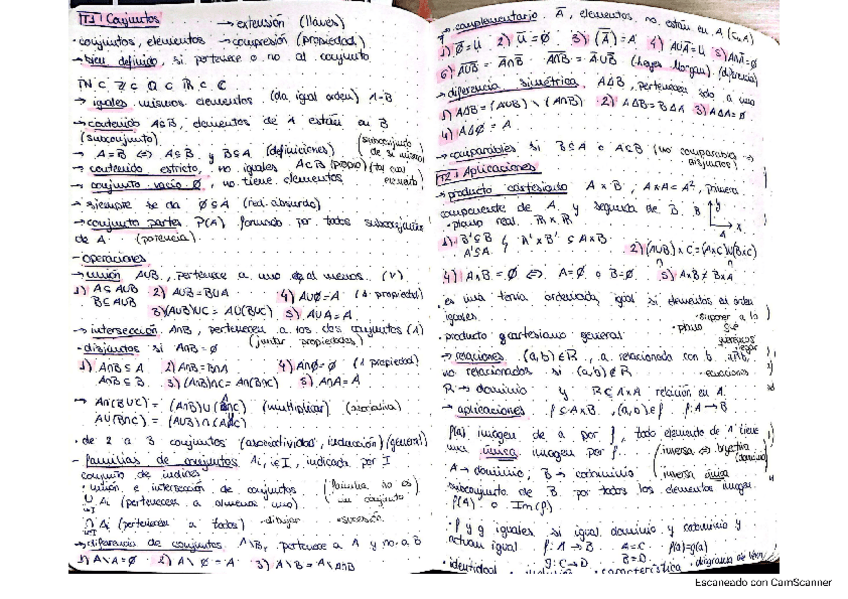 T.1: Conjuntos → extensión (llaves)
· conjuntos, elementos → compresión (propiedad)
→ bien definido, si pertenece o no al conjunto
ℕ ⊂ ℤ ⊂ ℚ ⊂ ℝ ⊂ ℂ
→ iguales mismos elementos (da igual orden) A=B
→ contenido A⊆B, elementos de A están en B
(subconjunto) (subconjunto de si mismo)
→ A=B ⇔ A⊆B y B⊆A (definiciones)
→ contenido estricto, no iguales A⊂B (propio)
→ conjunto vacío ∅, no tiene elementos
→ siempre se da ∅⊆A (red. absurdo)
→ conjunto partes P(A) formado por todos subconjuntos
de A (potencia)
- operaciones
→ unión A∪B, pertenece a uno al menos (∨)
1) A⊆A∪B 2) A∪B=B∪A 4) A∪∅=A (1 propiedad)
B⊆A∪B 3) (A∪B)∪C = A∪(B∪C) 5) A∪A=A
→ intersección A∩B, pertenecen a los dos conjuntos (∧)
· disjuntos si A∩B=∅ (juntar propiedades)
1) A∩B⊆A 2) A∩B=B∩A 4) A∩∅=∅ (1 propiedad)
A∩B⊆B 3) (A∩B)∩C=A∩(B∩C) 5) A∩A=A
→ A∩(B∪C) = (A∩B)∪(A∩C) (multiplicar) (asociativa)
A∪(B∩C) = (A∪B)∩(A∪C)
· de 2 a 3 conjuntos (asociatividad, inducción) (general)
- familias de conjuntos Ai, i∈I, indicada por I
conjunto de índices
· unión e intersección de conjuntos (familia no es un conjunto)
∪ Ai (pertenece a almenos uno)
i∈I
∩ Ai (pertenecen a todos) · dibujar · sucesión
i∈I
→ diferencia de conjuntos A\B, pertenece a A y no a B
1) A\A=∅ 2) A\∅=A 3) A\B=A\A∩B
→ complementario Ā, elementos no están en A
→ diferencia simétrica A∆B, pertenezcan solo a uno
1) A∆B=(A∪B)\(A∩B) 2) A∆B=B∆A 3) A∆A=∅
4) A∆∅=A
→ comparables si B⊆A o A⊆B (no comparables → disjuntos)
T2: Aplicaciones
→ producto cartesiano A×B, A×A=A², primera
componente de A, y segunda de B
· plano real ℝ×ℝ
1) B'⊆B y A'×B'⊆A×B
A'⊆A
4) A×B=∅ ⇔ A=∅ o B=∅ 5) A×B≠B×A
· es una tonia ordenada, igual si elementos al orden
iguales
· producto cartesiano general
→ relaciones (a,b)∈R, a relacionada con b, aRb,
no relacionados si (a,b)∉R · ecuaciones
R→ dominio y R⊆A×A relación en A
→ aplicaciones f⊆A×B, (a,b)∈f f:A→B
f(a) imagen de a por f, todo elemento de A tiene
una única imagen por f (inversa ⇔ biyectiva
A→dominio; B→codominio inversa única
subconjunto de B por todos los elementos imagen
f(A) o Im(f)
· f y g iguales si igual dominio y codominio y
actúan igual f:A→B A=C f(a)=g(a)
g:C→D B=D
· identidad · característica · diagrama de
Escaneado con CamScanner